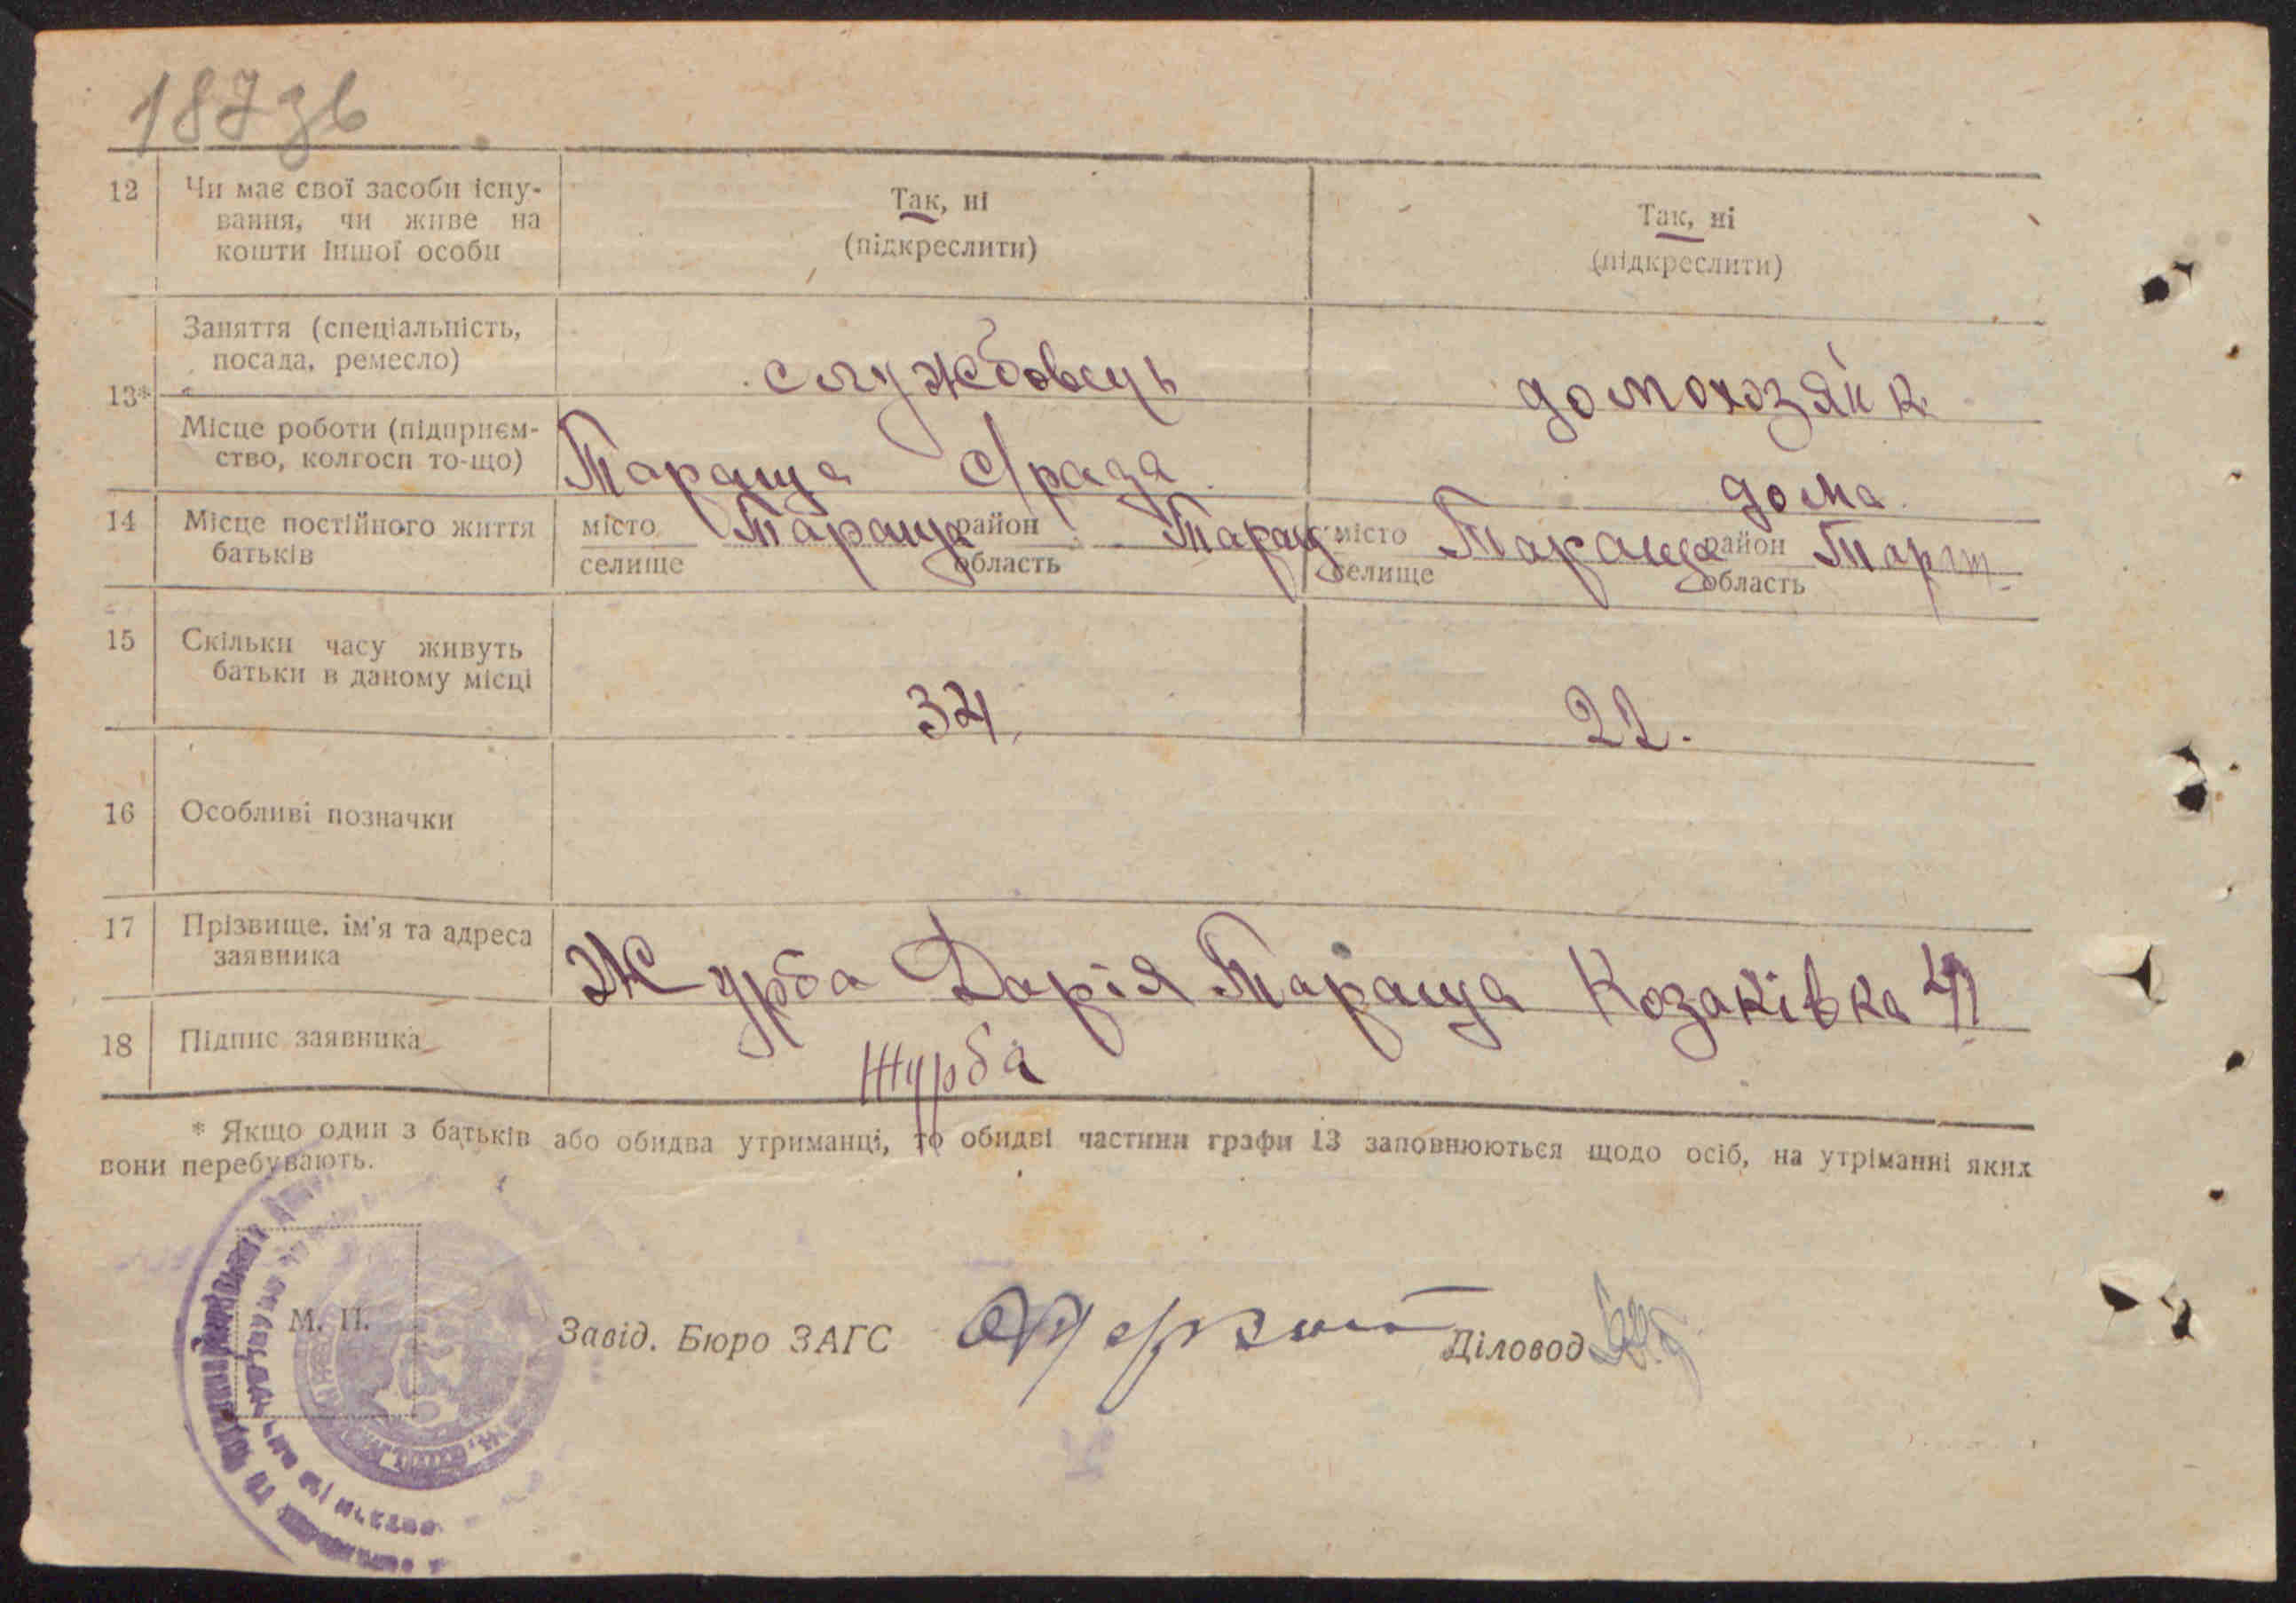 187 зв
12 Чи має свої засоби існу-
вання, чи живе на
кошти іншої особи
Так, ні
(підкреслити)
Так, ні
(підкреслити)
13*
Заняття (спеціальність,
посада, ремесло)
службовець
домохозяйк
Місце роботи (підприєм-
ство, колгосп то-що)
Тараща с/рада
дома
14 Місце постійного життя
батьків
місто Тараща район Таращ
селище область
місто Тараща район
селище область
15 Скільки часу живуть
батьки в даному місці
34.
22.
16 Особливі позначки
17 Прізвище, ім'я та адреса
заявника
Журба Дарія Тараща Козаківка
18 Підпис заявника
Журба
* Якщо один з батьків або обидва утриманці, то обидві частини графи 13 заповнюються щодо осіб, на утріманні яких
вони перебувають.
М. П.
Завід. Бюро ЗАГС
Діловод